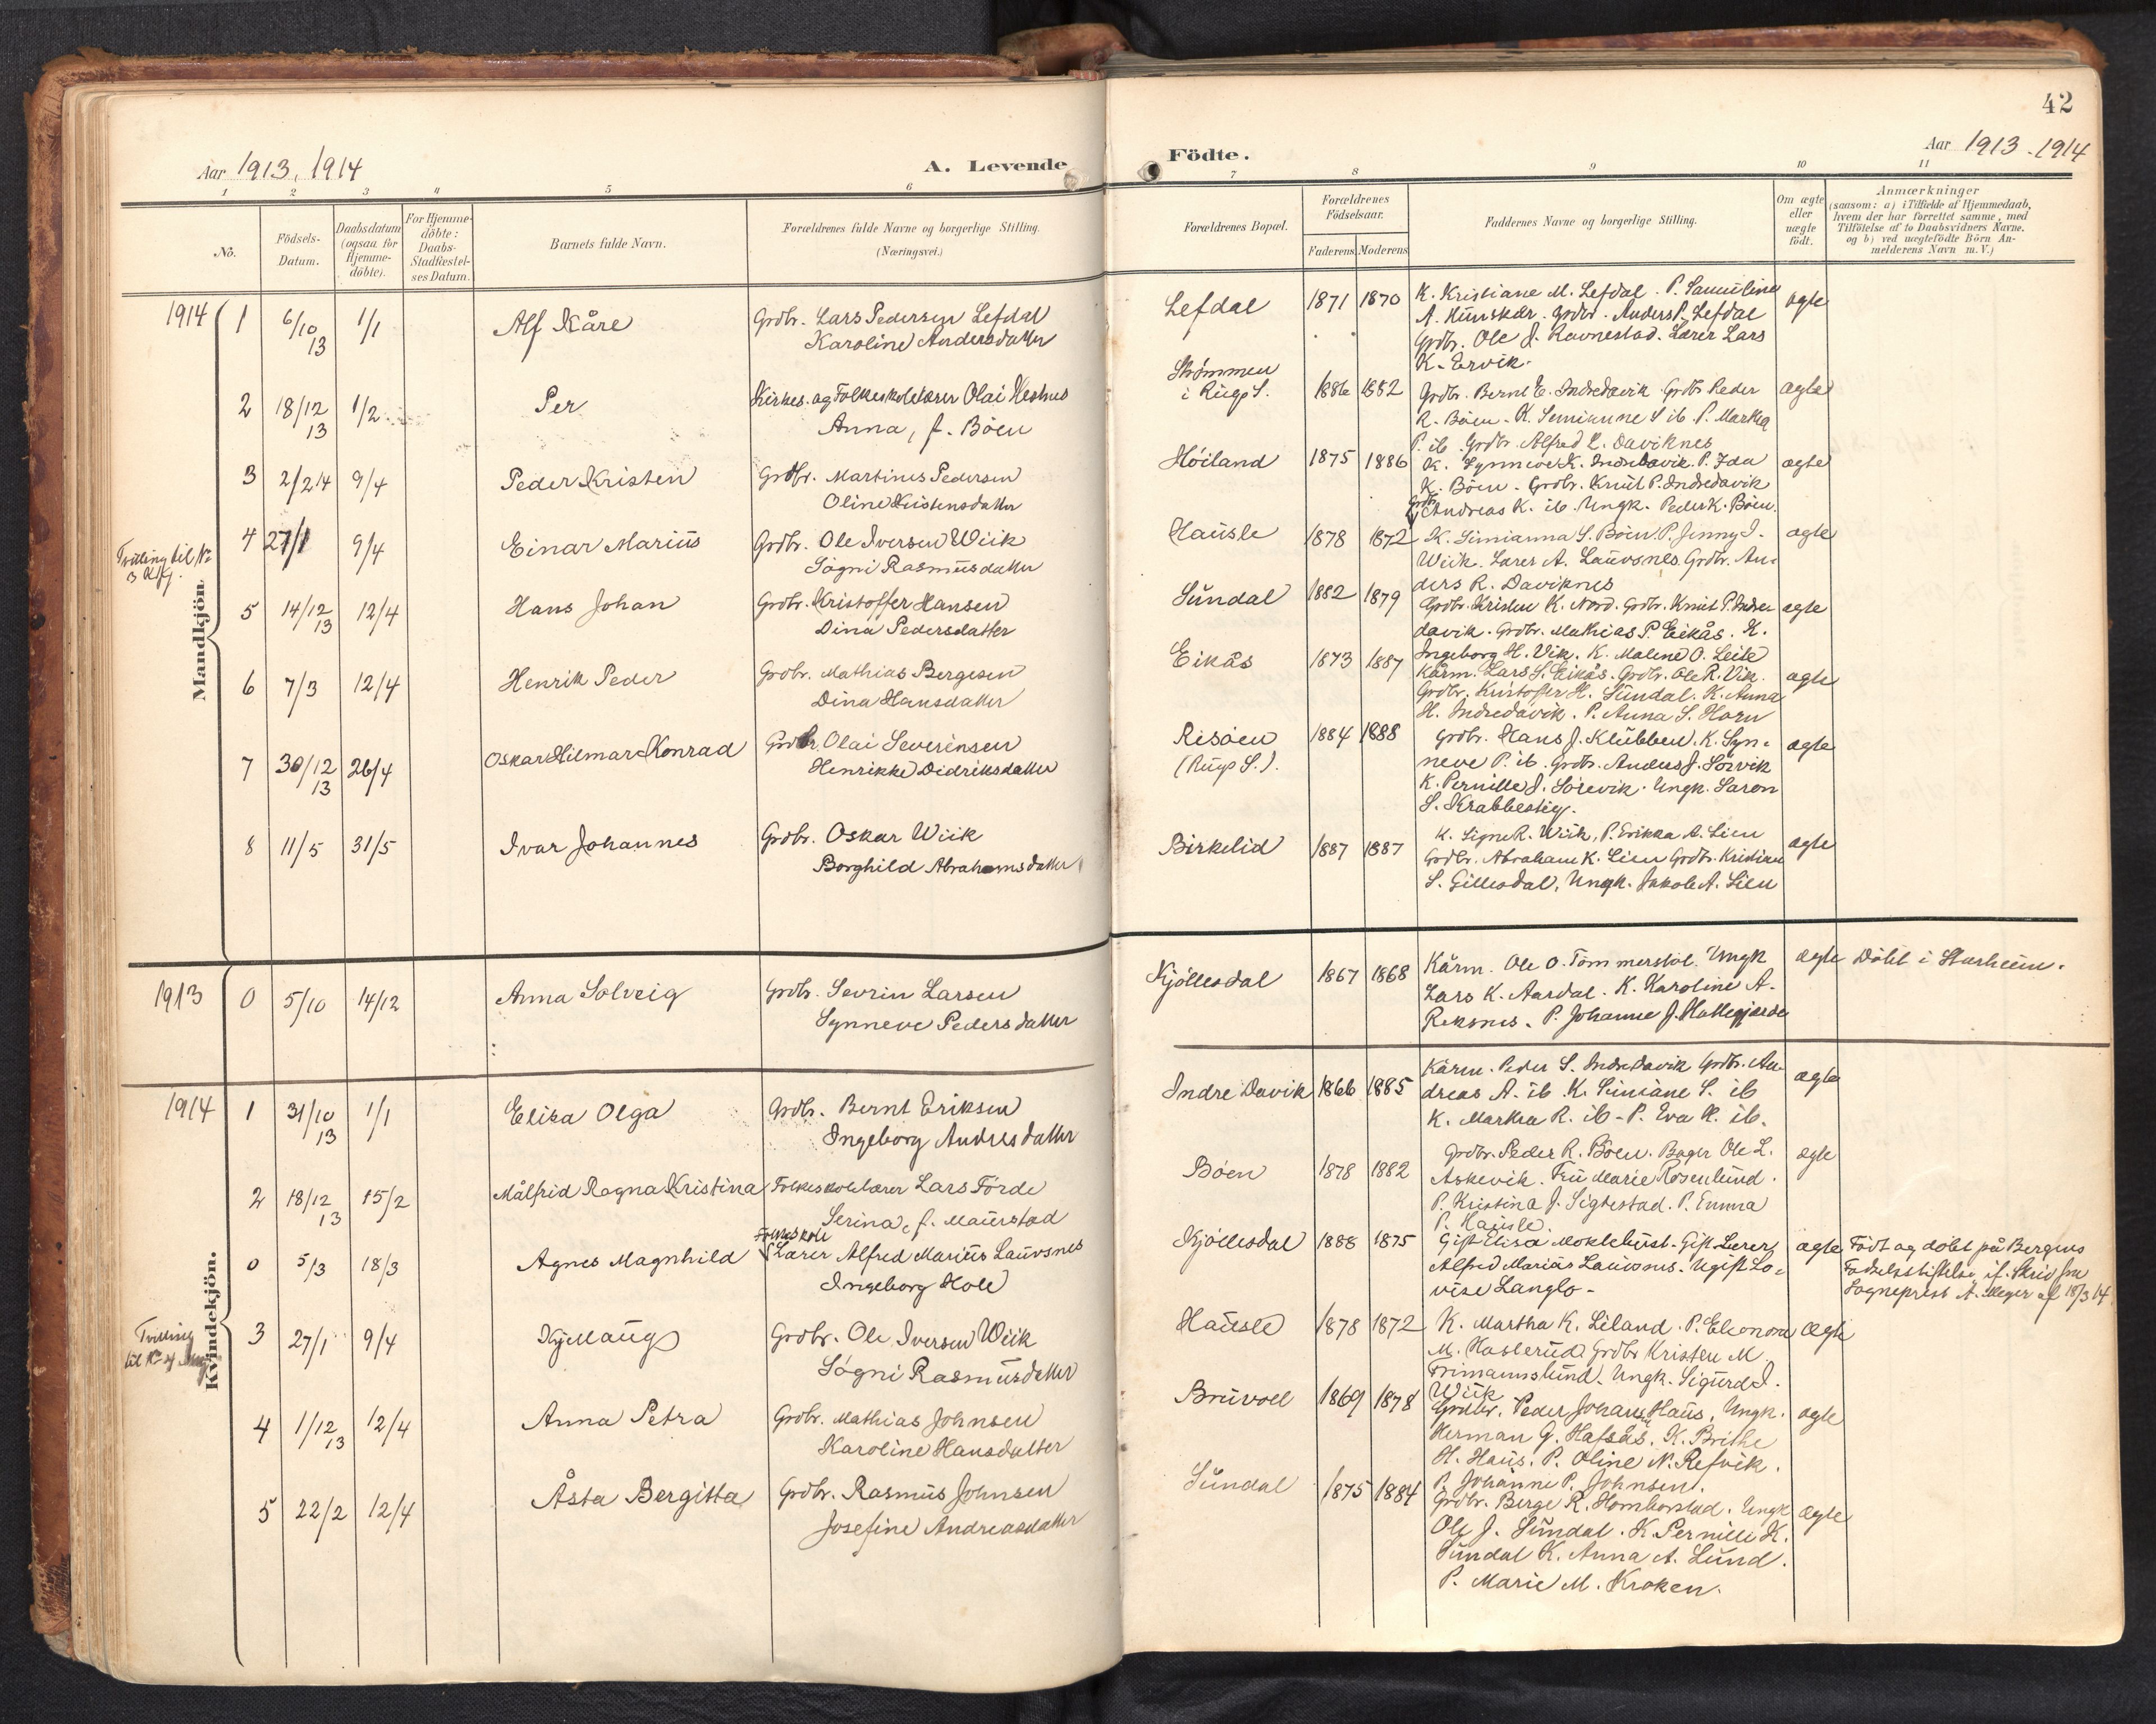 42
Aar 1913, 1914
A. Levende
Födte.
Aar 1913-1914
1 2 3 4 5 6 7 8 9 10 11
No.
Födsels-Datum.
Daabsdatum (ogsaa for Hjemme-döbte).
For Hjemme-döbte: Daabs-Stadfæstel-ses Datum.
Barnets fulde Navn.
Forældrenes fulde Navne og borgerlige Stilling. (Næringsvei.)
Forældrenes Bopæl.
Forældrenes Födselsaar.
Faderens Moderens
Faddernes Navne og borgerlige Stilling.
Om ægte eller uægte födt.
Anmærkninger (saasom: a) i Tilfælde af Hjemmedaab, hvem der har forrettet samme, med Tilföielse af to Daabsvidners Navne. og b) ved uægtefödte Börn An-melderens Navn m.V.)
Mandkjön.
1914 1 6/10 13 1/1 Alf Kåre Grdbr. Lars Pedersen Lefdal
Karoline Andersdatter
Lefdal 1871 1870 K. Kristiane M. Lefdal. P. Samuline
A. Hunskår. Grdbr. Anders P. Lefdal
Grdbr. Ole J. Ravnestad. Lærer Lars
K. Ervik.
ægte
2 18/12 13 1/2 Per Kirkes. og Folkeskolelærer Olai Hestnes
Anna, f. Böen
Strømmen
i Rugs S. 1886 1882 Grdbr. Bernt E. Indredavik Grdbr. Peder
R. Böen. K. Semianne S ib. P. Martha
P. ib. Grdbr. Alfred L. Daviknes
ægte
3 2/2 14 9/4 Peder Kristen Grdbr. Martinus Pedersen
Oline Kristensdatter
Höiland 1875 1886 K. Synneve K. Indredavik. P. Ida
K. Böen. Grdbr. Knut P. Indredavik
Grdbr. Andreas K. ib. Ungk. Peder K. Böen.
ægte
Tvilling til No
3 Kkj.
4 27/1 9/4 Einar Marius Grdbr. Ole Iversen Wiik
Sögni Rasmusdatter
Hausle 1878 1872 K. Simianna S. Böen. P. Jenny I.
Wiik. Lærer A. Lauvsnes. Grdbr. An-
ders R. Daviknes
ægte
5 14/12 13 12/4 Hans Johan Grdbr. Kristoffer Hansen
Dina Pedersdatter
Sundal 1882 1879 Grdbr. Kristen K. Nord. Grdbr. Knut P. Indre
davik. Grdbr. Mathias P. Eikås. K.
Ingeborg H. Vik. K. Malene O. Leite
ægte
6 7/3 12/4 Henrik Peder Grdbr. Mathias Bergesen
Dina Hansdatter
Eikås 1873 1887 Kårm. Lars S. Eikås. Grdbr. Ole R. Vik.
Grdbr. Kristoffer H. Sundal. K. Anna
H. Indredavik. P. Anna S. Horn
ægte
7 30/12 13 26/4 Oskar Hilmar Konrad Grdbr. Olai Severinsen
Henrikke Didriksdatter
Risöen
(Rugs S.). 1884 1888 Grdbr. Hans J. Klubben. K. Syn-
neve P. ib. Grdbr. Anders J. Sörvik
K. Pernille J. Sörevik. Ungk. Saron
S. Krabbestig.
ægte
8 11/5 31/5 Ivar Johannes Grdbr. Oskar Wiik
Borghild Abrahamsdatter
Birkelid 1887 1887 K. Signe R. Wiik, P. Erikka A. Lien
Grdbr. Abraham K. Lien Grdbr. Kristian
S. Gillesdal, Ungk. Jakob A. Lien
ægte
Kvindekjön.
1913 0 5/10 14/12 Anna Solveig Grdbr. Sevrin Larsen
Synneve Pedersdatter
Kjöllesdal 1867 1868 Kårm. Ole O. Tömmerstöl. Ungk
Lars K. Aardal. K. Karoline A.
Reksnes. P. Johanne J. Hattegjærde
ægte Döbt i Starheim.
1914 1 31/10 13 1/1 Elisa Olga Grdbr. Bernt Eriksen
Ingeborg Andersdatter
Indre Davik 1866 1885 Kårm. Peder S. Indredavik Grdbr. An-
dreas A. ib K. Simiane S. ib
K. Martha R. ib - P. Eva R. ib.
ægte
2 18/12 13 15/2 Målfrid Ragna Kristina Folkeskolelærer Lars Förde
Serina, f. Maurstad
Böen 1878 1882 Grdbr. Peder R. Böen. Bager Ole L.
Askevik. Fru Marie Rosenlund.
P. Kristina J. Sigtestad. P. Emma
P. Hausle.
ægte
0 5/3 18/3 Agnes Magnhild Folkeskole
Lærer Alfred Marius Lauvsnes
Ingeborg Hole
Kjöllesdal 1888 1875 Gift Elisa Moklebust. Gift Lærer
Alfred Marius Lauvsnes. Ugift Lo-
vise Langlo-
ægte Födt og döbt på Bergens
Födselsstiftelse if. Skriv fra
Sogneprest A. Meyer af 18/3 14
Tvilling
til No 4
3 27/1 9/4 Kjellaug Grdbr. Ole Iversen Wiik
Sögni Rasmusdatter
Hausle 1878 1872 K. Martha K. Liland. P. Eleonora
M. Haslerud Grdbr Kristen M.
Frimannslund. Ungk. Sigurd I.
Wiik
ægte
4 1/12 13 12/4 Anna Petra Grdbr. Mathias Johnsen
Karoline Hansdatter
Bruvoll 1869 1878 Grdbr. Peder Johans. Haus, Ungk.
Herman G. Hafsås. K. Brithe
H. Haus. P. Oline N. Refvik.
P. Johanne P. Johnsen.
ægte
5 22/2 12/4 Åsta Bergitta Grdbr. Rasmus Johnsen
Josefine Andreasdatter
Sundal 1875 1884 Grdbr. Berge R. Hornborstad. Ungk
Ole J. Sundal. K. Pernille K.
Sundal K. Anna A. Lund.
P. Marie M. Kroken.
ægte